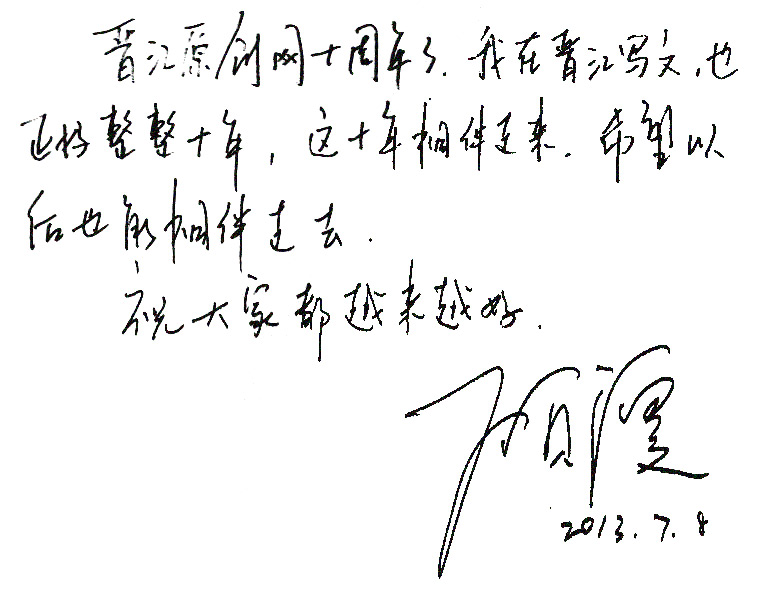 晋江原创网十周年了.我在晋江写文,也
正好整整十年,这十年相伴走来.希望以
后也能相伴走去.
祝大家都越来越好.
顾漫
2013.7.8